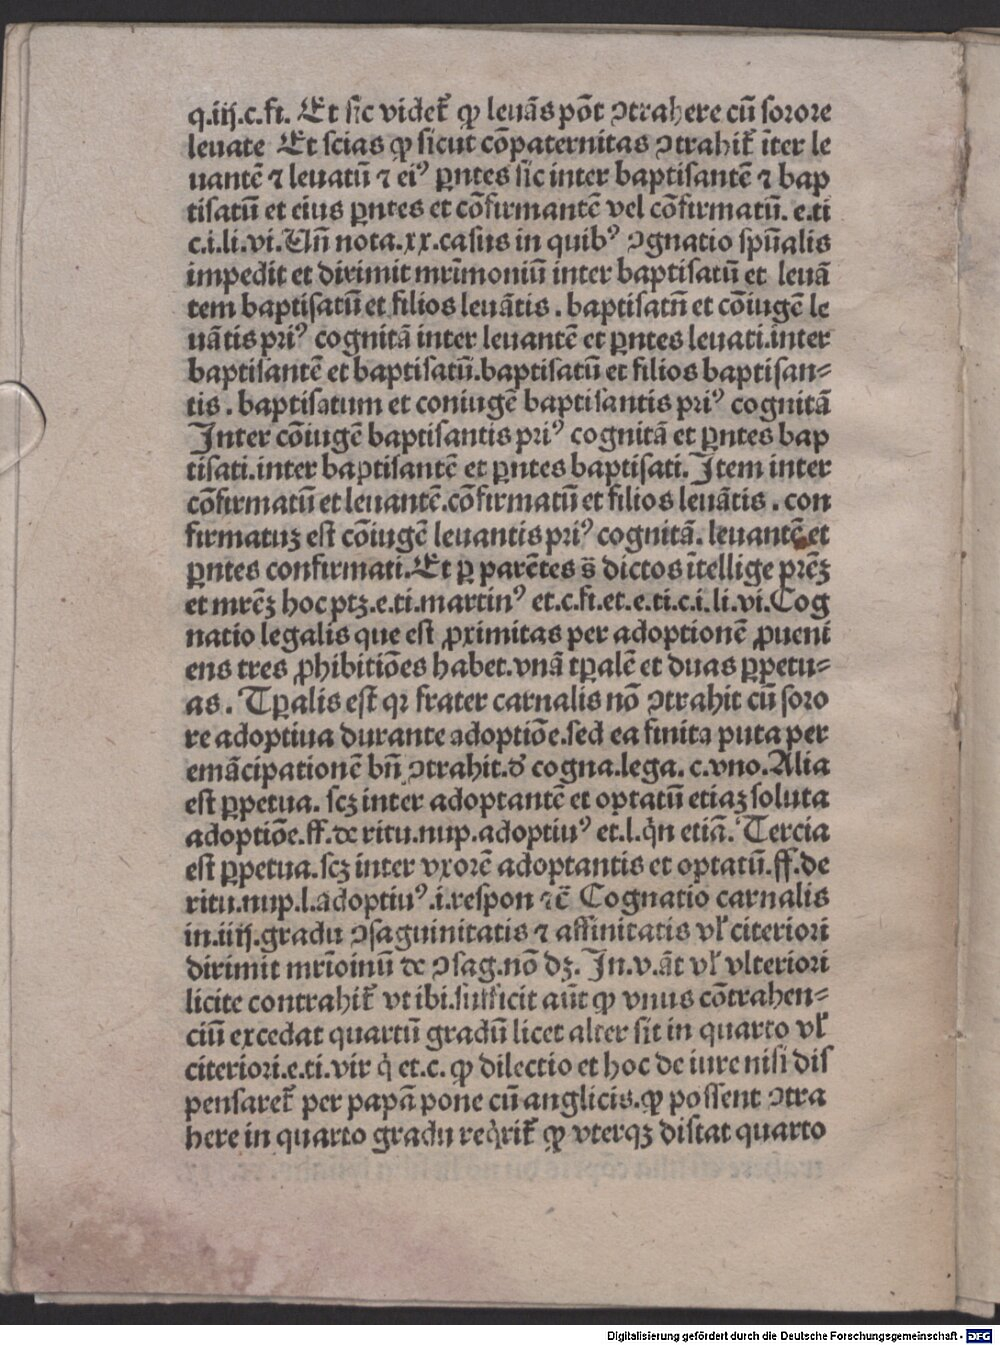 q.iij.c.fi. Et sic videt᷑ ꝙ leuās pōt ↄtrahere cū sorore
leuate Et scias ꝙ sicut cōpaternitas ↄtrahit᷑ īter le
uantē ⁊ leuatū ⁊ eiꝰ ꝑntes sic inter baptisantē ⁊ bap
tisatū et eius ꝑntes et cōfirmantē vel cōfirmatū. e.ti
c.i.li.vi. Vn̄ nota.xx.casus in quibꝰ ↄgnatio spūalis
impedit et dirimit mr̄imoniū inter baptisatū et leuā
tem baptisatū et filios leuātis . baptisatū et cōiugē le
uātis priꝰ cognitā inter leuantē et ꝑntes leuati.inter
baptisantē et baptisatū.baptisatū et filios baptisan⸗
tis . baptisatum et coniugē baptisantis priꝰ cognitā
Inter cōiugē baptisantis priꝰ cognitā et ꝑntes bap
tisati.inter baptisantē et ꝑntes baptisati. Item inter
cōfirmatū et leuantē.cōfirmatū et filios leuātis . con
firmatuꝫ est cōiugē leuantis priꝰ cognitā. leuantē et
ꝑntes confirmati. Et ꝑ parētes s̄ dictos ītellige pr̄eꝫ
et mr̄eꝫ hoc ptꝫ.e.ti.martinꝰ et.c.fi.et.e.ti.c.i.li.vi. Cog
natio legalis que est ꝓximitas per adoptionē ꝓueni
ens tres ꝓhibitiōes habet.vnā tꝑalē et duas ꝑpetu⸗
as . Tꝑalis est qꝛ frater carnalis nō ↄtrahit cū soro
re adoptiua durante adoptiōe.sed ea finita puta per
emācipationē bn̄ ↄtrahit.ḋ cogna.lega. c.vno. Alia
est ꝑpetua. scꝫ inter adoptantē et optatū etiaꝫ soluta
adoptiōe.ff.de ritu.nup.adoptiuꝰ et.l.qͥn etiā. Tercia
est ꝑpetua.scꝫ inter vxorē adoptantis et optatū.ff.de
ritu.nup.l.adoptiuꝰ.i.respon ⁊c̄ Cognatio carnalis
in.iiij.gradu ↄsaguinitatis ⁊ affinitatis vl᷑ citeriori
dirimit mr̄ioinū de ↄsag.nō dꝫ. In.v.āt vl᷑ vlteriori
licite contrahit᷑ vt ibi.sufficit aūt ꝙ vnus cōtrahen⸗
ciū excedat quartū gradū licet alter sit in quarto vl᷑
citeriori.e.ti.vir qͥ et.c. ꝙ dilectio et hoc de iure nisi dis
pensaret᷑ per papā pone cū anglicis.ꝙ possent ↄtra
here in quarto gradu reqͥrit᷑ ꝙ vterqꝫ distat quarto
Digitalisierung gefördert durch die Deutsche Forschungsgemeinschaft - DFG